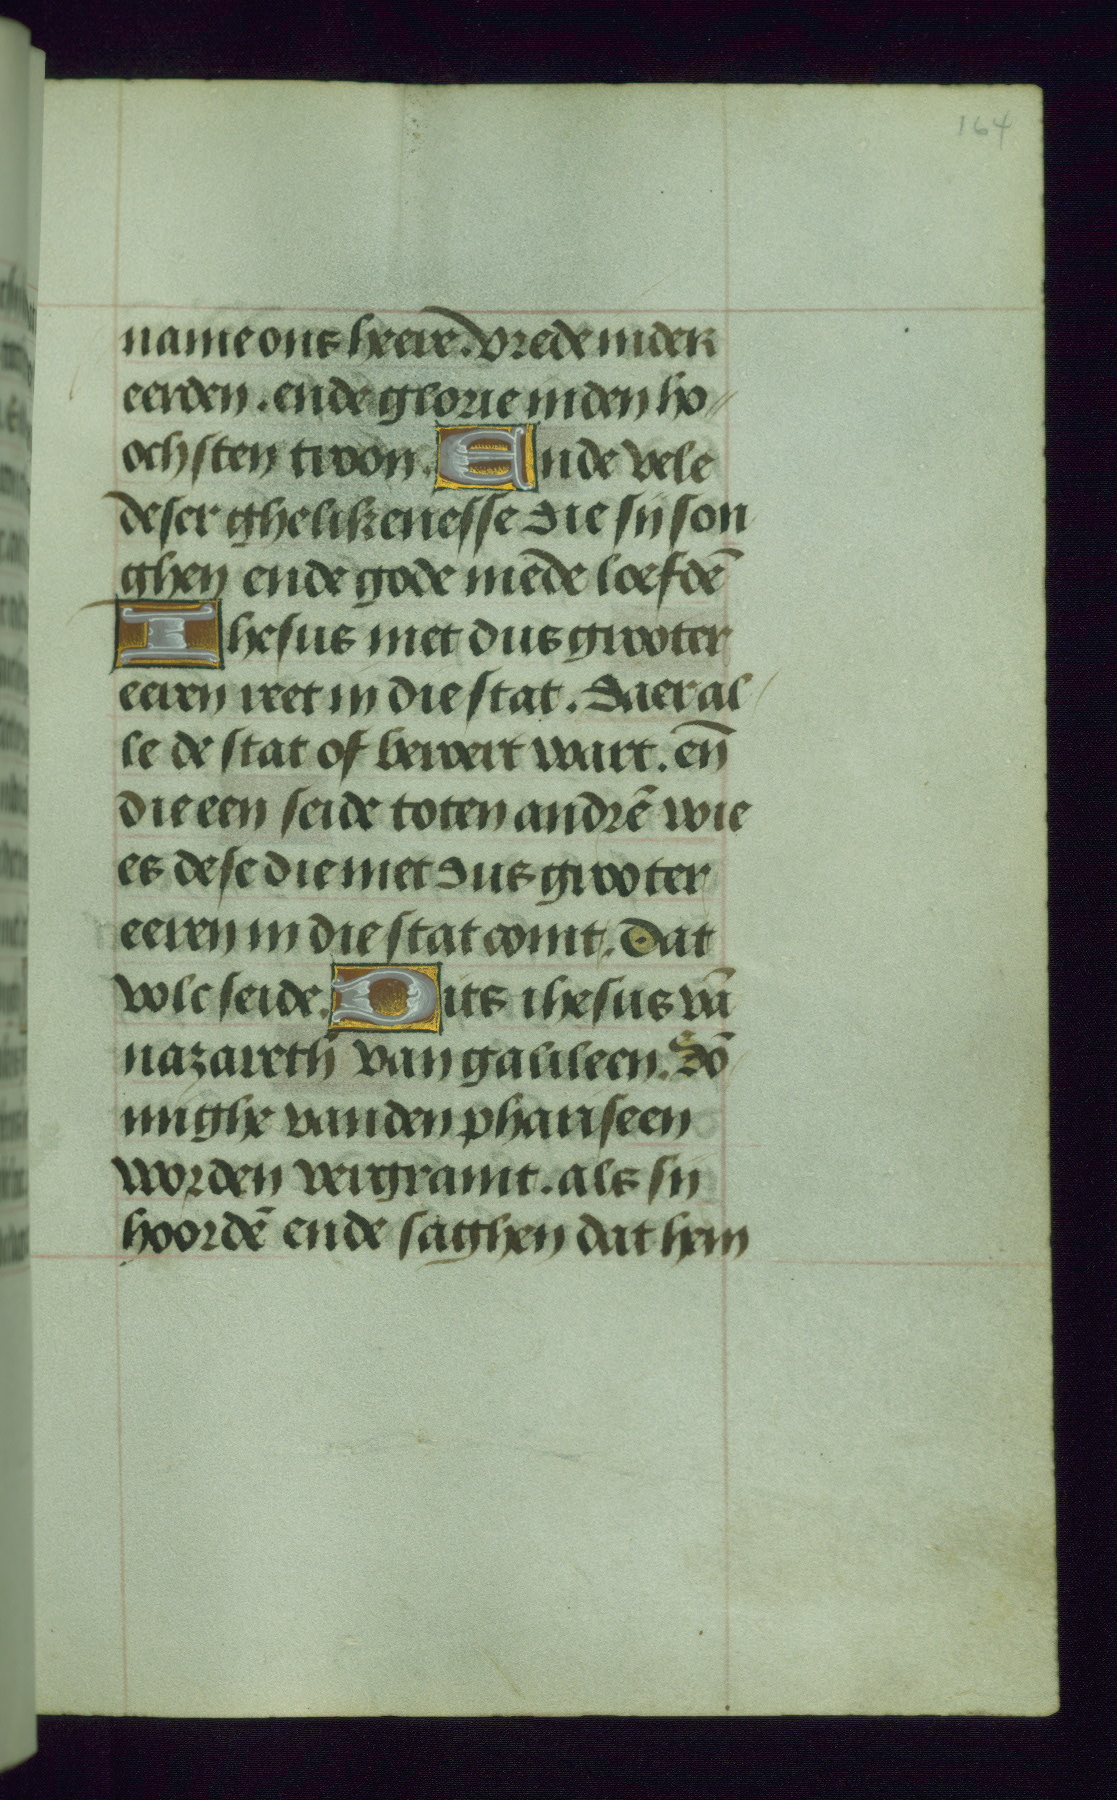 164
name ons heere. vrede in der
eerden. ende glorie in den ho
ochsten troon. Ende vele
deser ghelikenesse die sij son
ghen ende gode mede loefdē
Ihesus met dus grooter
eeren reet in die stat. daer al
le de stat of beroert wart. en̄
die een seide toten andrē wie
es dese die met dus grooter
eeren in die stat comt. Dat
volc seide. Dits ihesus vā
nazareth van galileen. Sō
mighe van den phariseen
worden vergramt. als sij
hoordē ende saghen dat hem